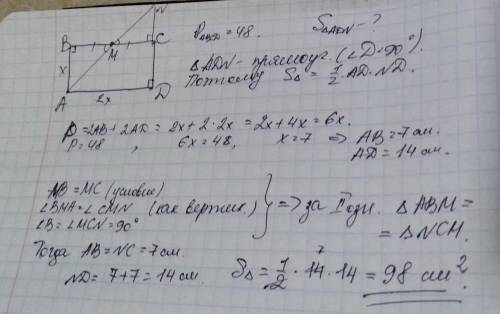 N
B M C
x
A 2x D
P ABCD = 48. S ΔADN - ?
Δ ADN - прямоуг. (∠D = 90°).
Поэтому SΔ = 1/2 · AD · ND.
P = 2AB + 2AD = 2x + 2 · 2x = 2x + 4x = 6x.
P = 48, 6x = 48, x = 7 ⇒ AB = 7 см.
AD = 14 см.
MB = MC (условие)
∠BMA = ∠CMN (как вертик.)
∠B = ∠MCN = 90°
} => за II озн. Δ ABM =
= Δ NCM.
Тогда AB = NC = 7 см.
ND = 7+7 = 14 см.
SΔ = 1/2 · 14 · 14 = 98 см².
7